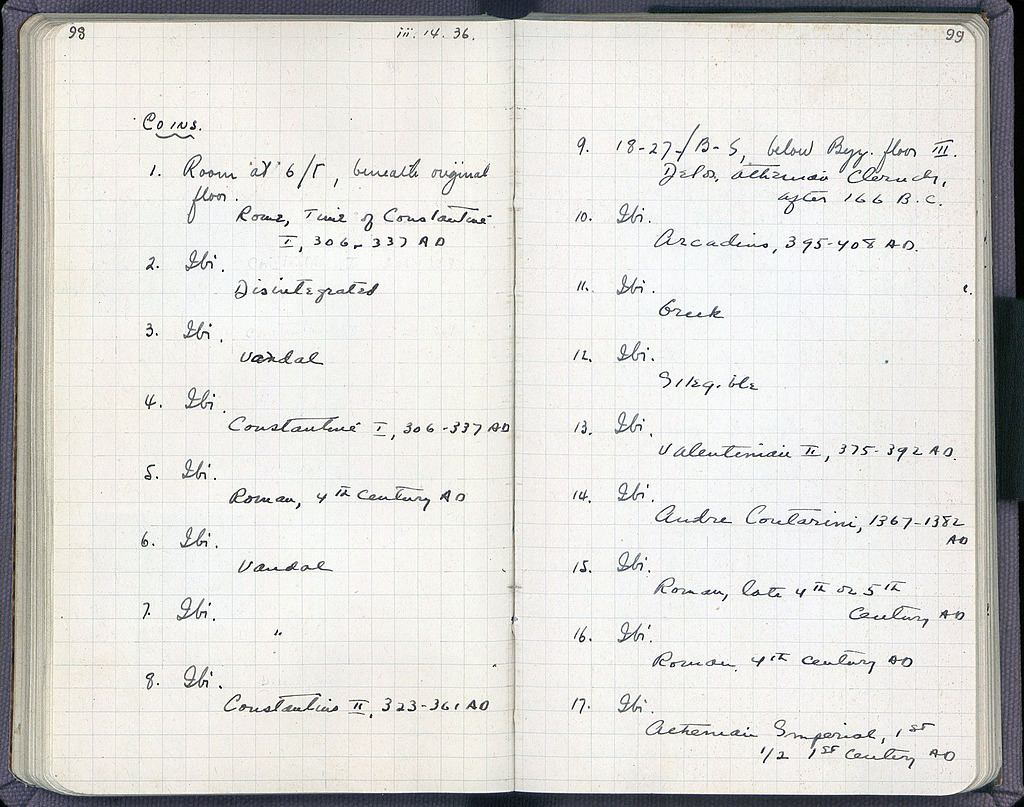 98
iii. 14. 36.
COINS.
1. Room at 6/Γ, beneath original
floor.
Rome, Time of Constantine
I, 306-337 AD
2. Ibi.
Disintegrated
3. Ibi.
Vandal
4. Ibi.
Constantine I, 306-337 AD
5. Ibi.
Roman, 4th Century AD
6. Ibi.
Vandal
7. Ibi.
"
8. Ibi.
Constantius II, 323-361 AD
99
9. 18-27/B-S, below Byz. floor III.
Delos, Athenian Cleruch,
after 166 B.C.
10. Ibi.
Arcadius, 395-408 AD.
11. Ibi.
Greek
12. Ibi.
Illegible
13. Ibi.
Valentinian II, 375-392 AD.
14. Ibi.
Andre Contarini, 1367-1382
AD
15. Ibi.
Roman, late 4th or 5th
Century AD
16. Ibi.
Roman, 4th century AD
17. Ibi.
Athenian Imperial, 1st
1/2 1st Century AD